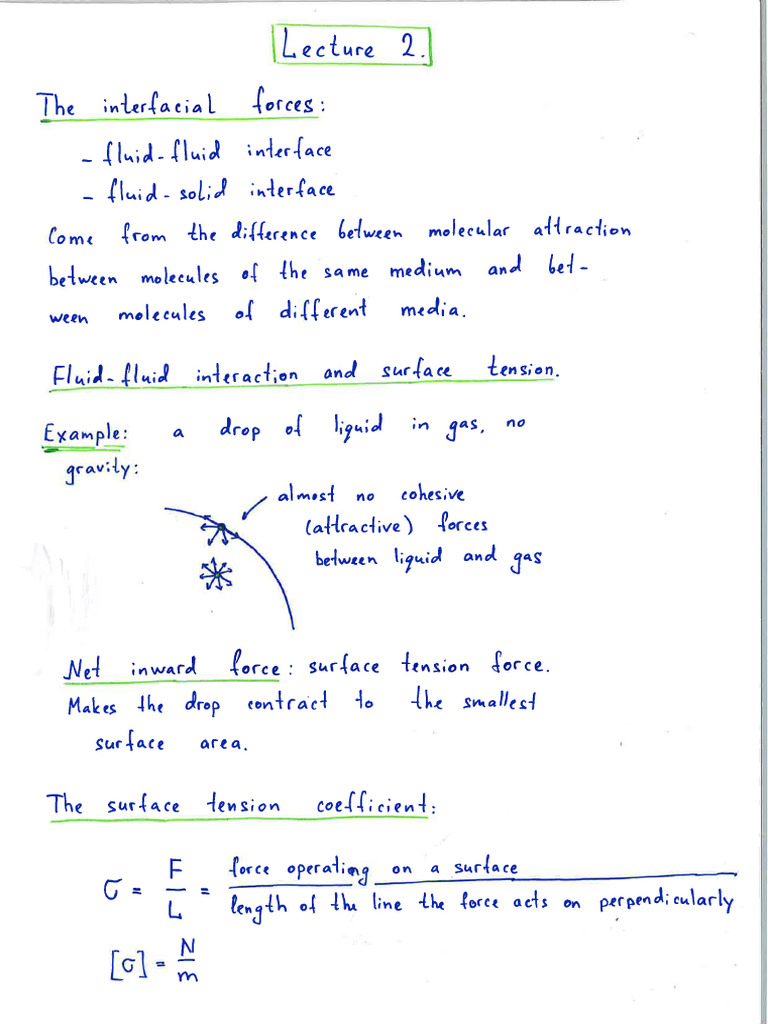 Lecture 2.
The interfacial forces:
- fluid-fluid interface
- fluid-solid interface
Come from the difference between molecular attraction
between molecules of the same medium and bet-
ween molecules of different media.
Fluid-fluid interaction and surface tension.
Example: a drop of liquid in gas, no
gravity:
almost no cohesive
(attractive) forces
between liquid and gas
Net inward force: surface tension force.
Makes the drop contract to the smallest
surface area.
The surface tension coefficient:
σ = F/L = force operating on a surface / length of the line the force acts on perpendicularly
[σ] = N/m